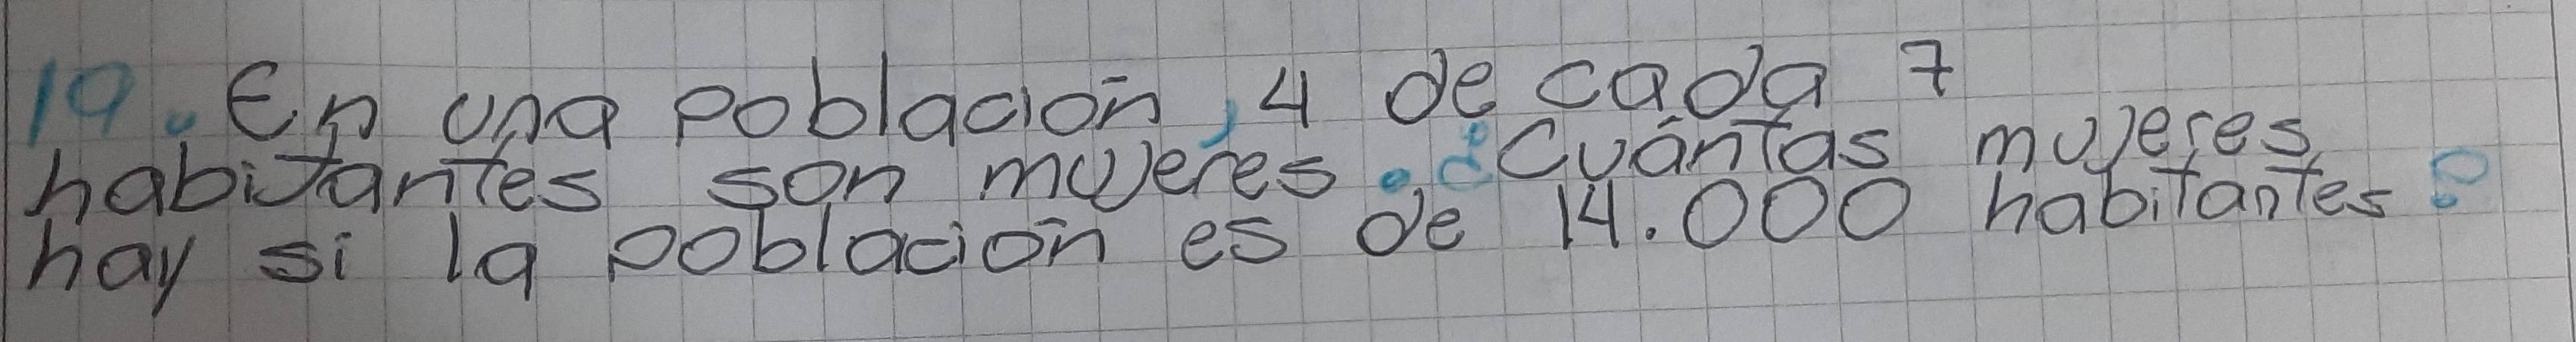 19. En una población, 4 de cada 7
habitantes son mujeres. ¿Cuántas mujeres
hay si la población es de 14.000 habitantes?